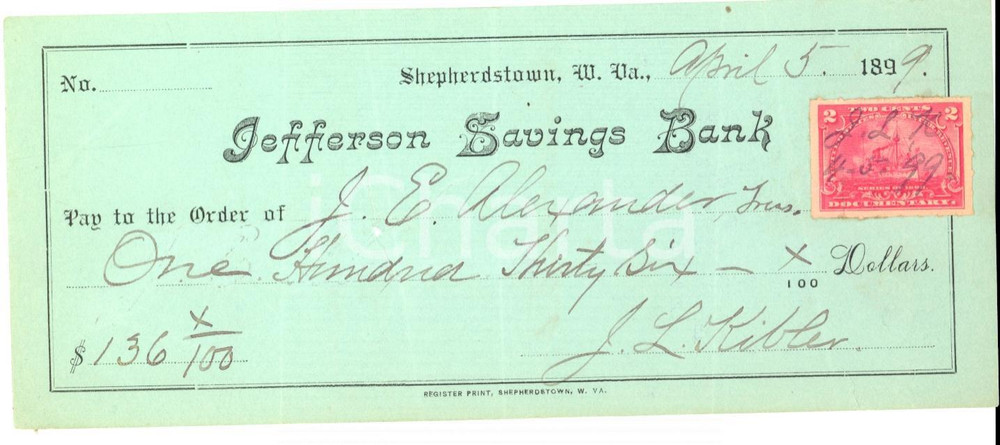 No. Shepherdstown, W. Va., April 5. 1899.
Jefferson Savings Bank
2 TWO CENTS 2
J. L. K.
4-5-99
SERIES OF 1898
DOCUMENTARY.
Pay to the Order of J. E. Alexander, Trus.
iCharta
One Hundred Thirty Six — x/100 Dollars.
$ 136 x/100
J. L. Kibler.
REGISTER PRINT, SHEPHERDSTOWN, W. VA.